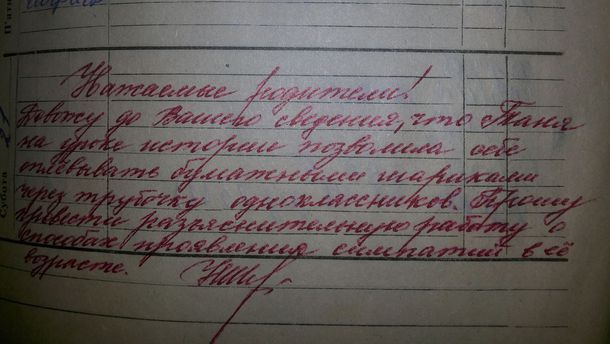 П'ятн
Субота
Уважаемые родители!
Довожу до Вашего сведения, что Таня
на уроке истории позволила себе
оплёвывать бумажными шариками
через трубочку одноклассников. Прошу
провести разъяснительную работу о
способах проявления симпатий в её
возрасте.